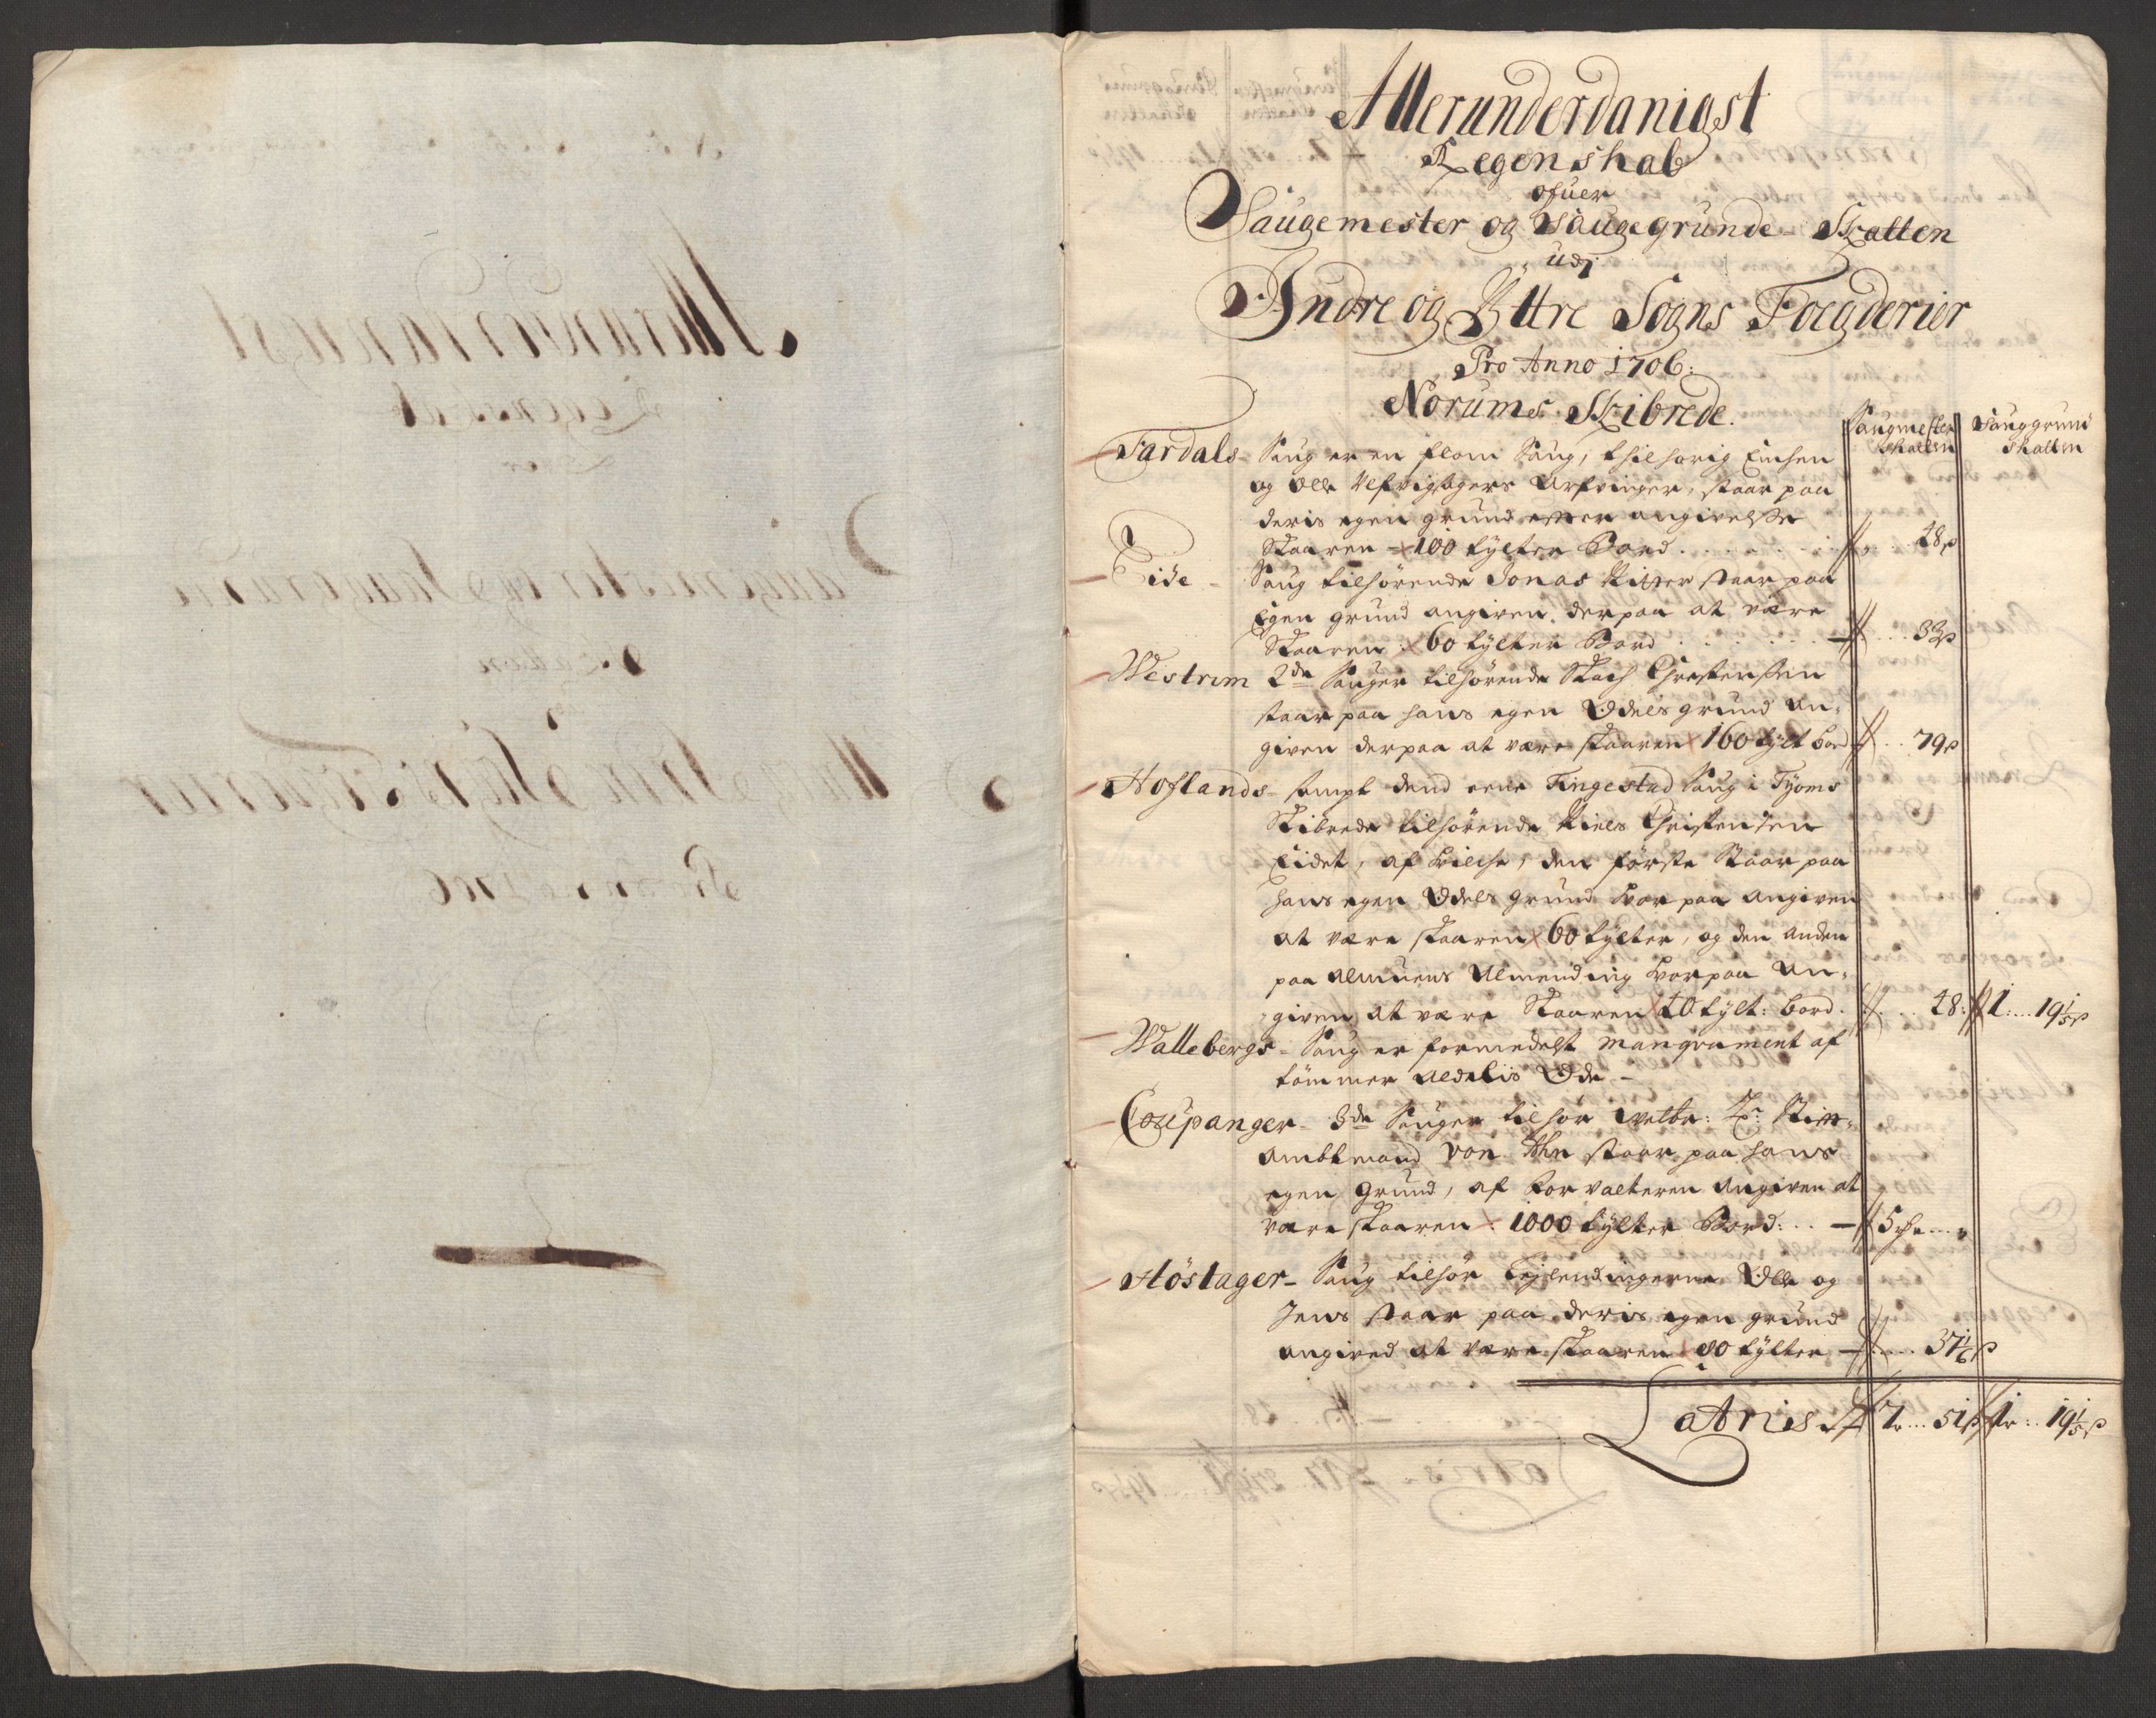 Allerunderdanigst
Regenshab
ofuer
Saugemester og Saugegrunde-Skatten
udj
Indre og Yttre Sogns Foegderier
Pro Anno 1706:
Norums Skibrede.
Saugmester Skatten
Sauggrund Skatten
Fardals- Saug er en flom Saug, tilhørig
og Olle arfvinger, staar paa
deris egen grund efter angivelse
Skaaren 100 tylter Bord . . . . . 48 s
Eide - Saug tilhørende Jonas Ritzer staar paa
Egen grund angiven derpaa at være
Skaaren: 60 tylter Bord . . . . . . 32 s
Westrim 2de Sauger tilhørende Stach Christensen
staar paa hans egen Odels grund an-
given derpaa at være skaaren 160 tylt bord . . 79 s
Hoflands- sampt dend eene Tingestad Saug i Tyoms
Skibrede tilhørende Niels Christensen
Eidet, af hvilche, den første Staar paa
hans egen Odels grund hvor paa angiven
at være skaaren 60 tylter, og den anden
paa almuens almending hvorpaa an-
given at være Skaaren 40 tylt: bord. . . . 48: 1: . . . 19 1/5 s
Wallebergs- Saug er formedelst manqvement af
tømmer aldelis Øde -
Coupanger- 3de Sauger tilhør welbr: Hr: Stift-
ambtmand von Ahn staar paa hans
egen Grund, af forvalteren angiven at
være skaaren: 1000 tylter Bord: . . - 5 . . .
Høstager- Saug tilhør Eylendingerne Olle og
Jens staar paa deris egen grund
angived at være skaaren 80 tylter - . . . 37 1/6 s
Latris 7 . . . 51 s 1 : . 19 1/5 s